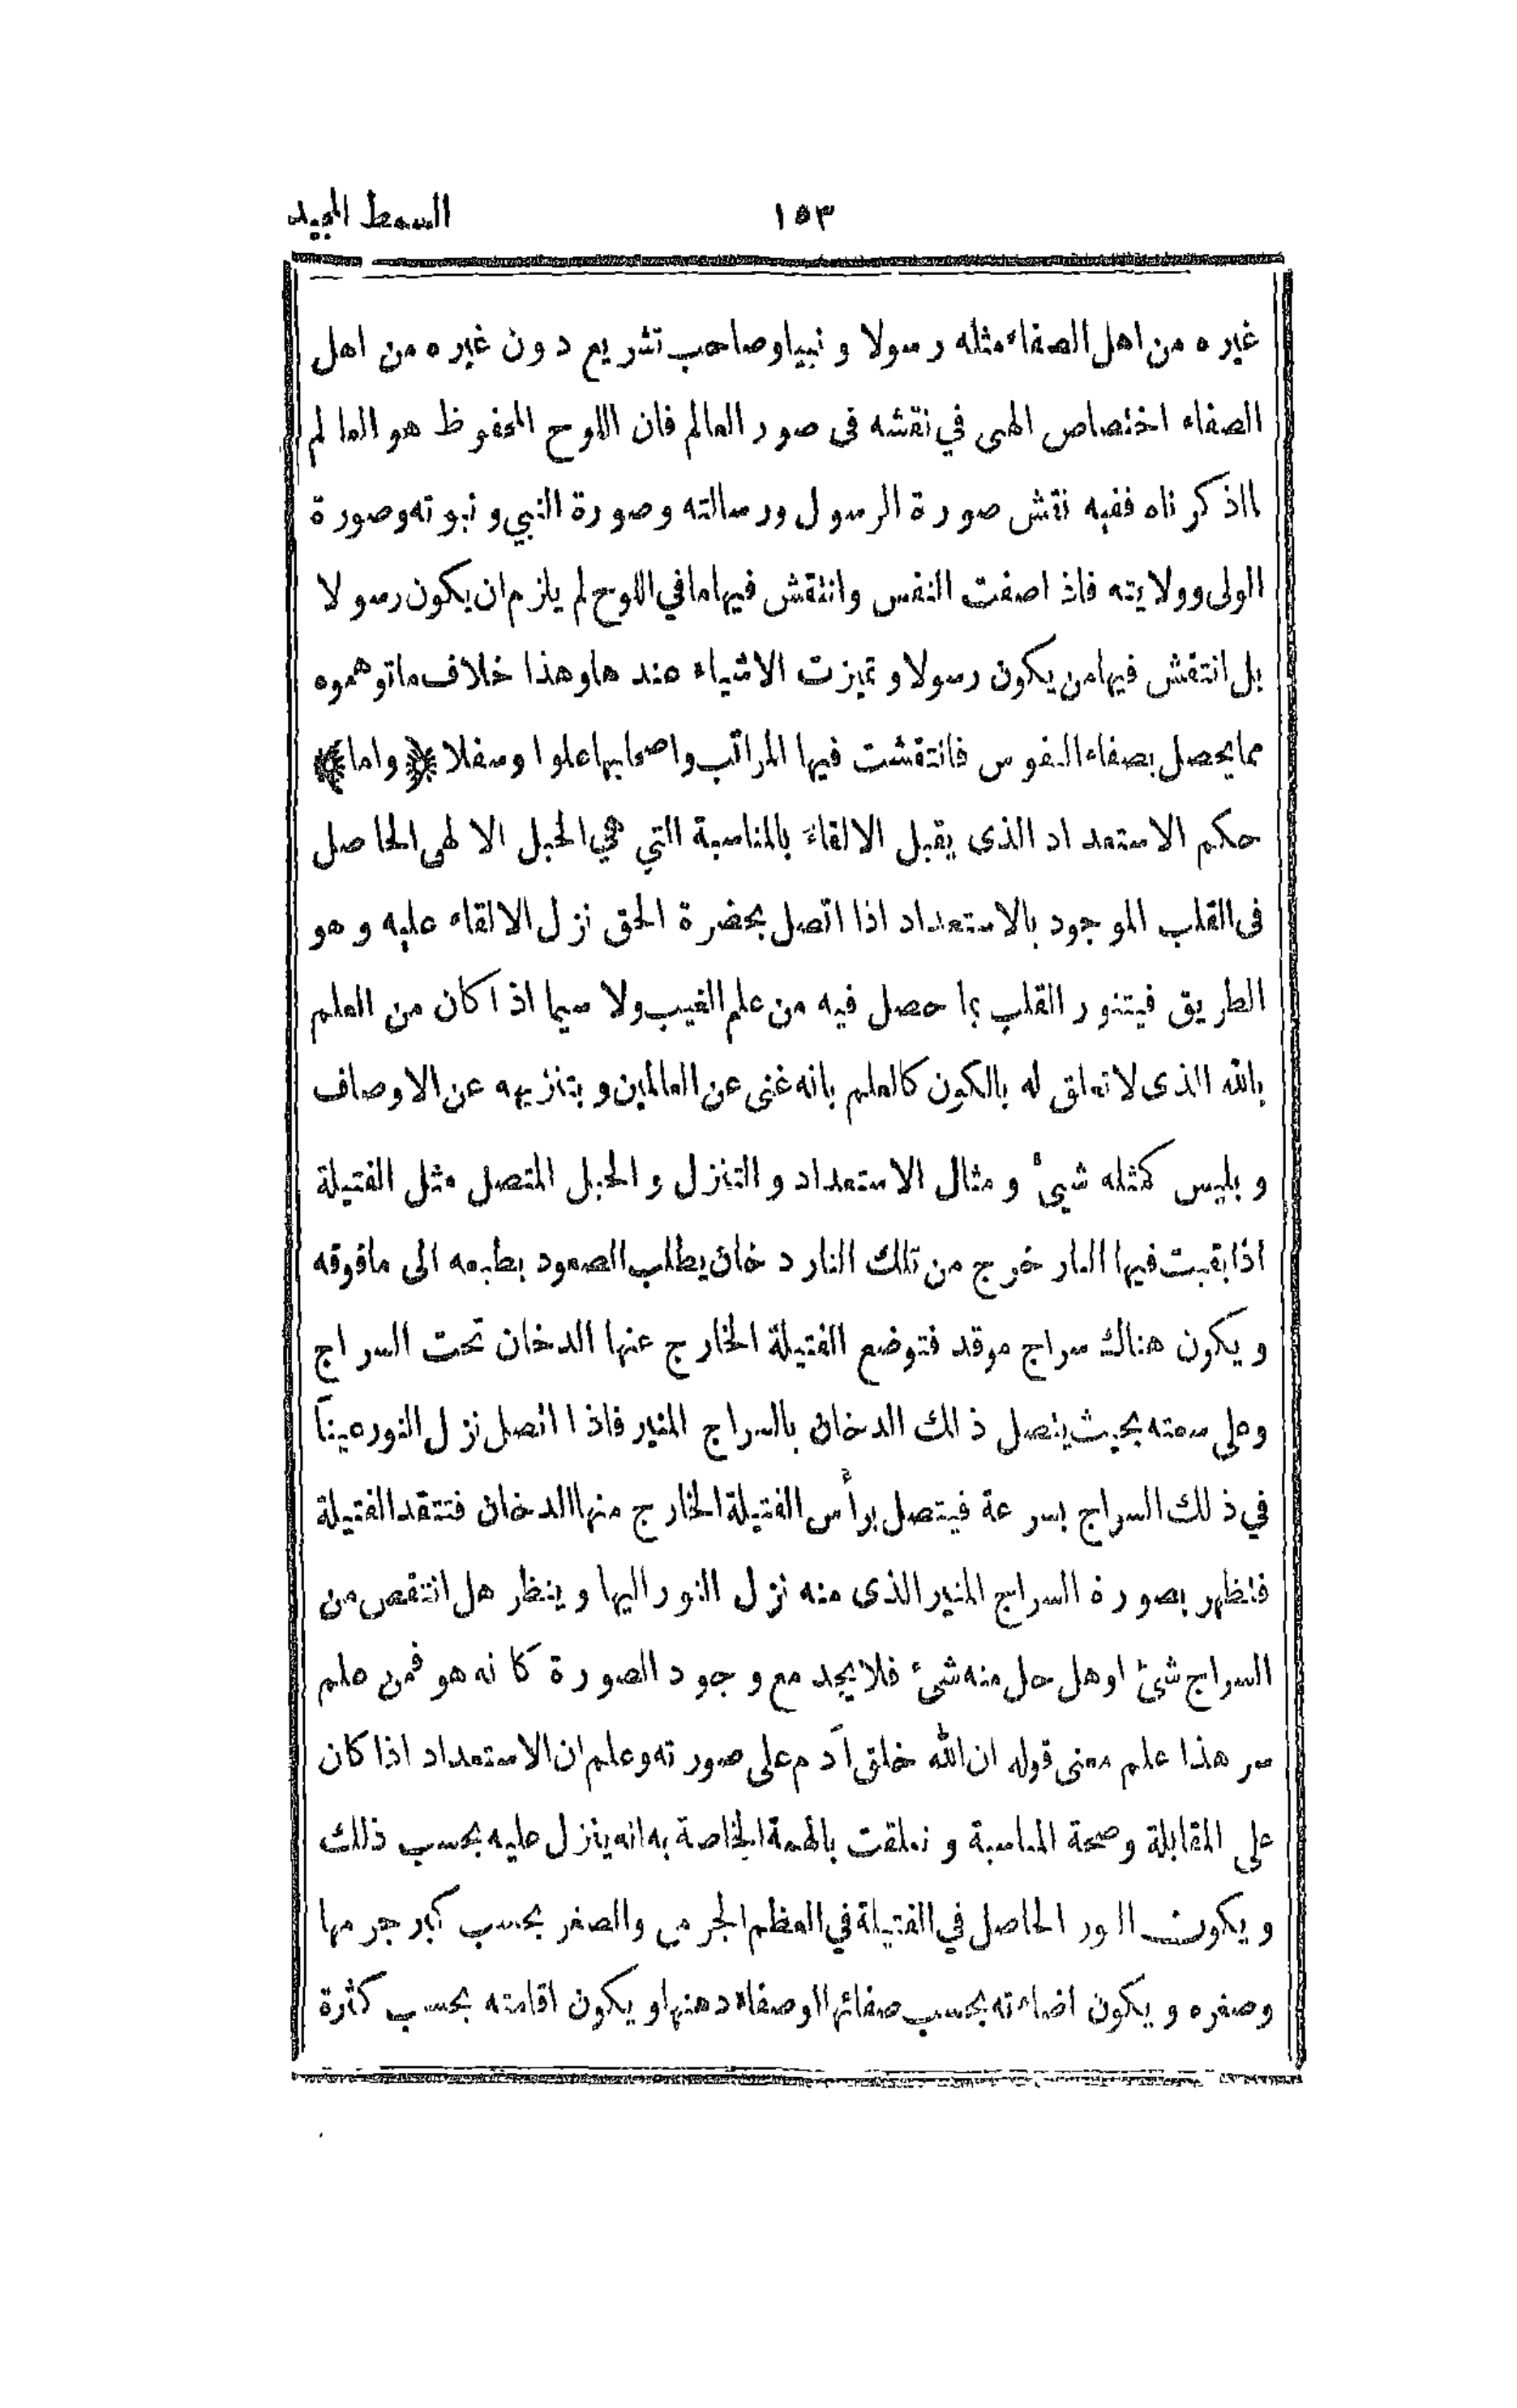 السمط المجيد
١٥٣
غيره من اهل الصفاء مثله رسولا ونبيا وصاحب تشريع دون غيره من اهل
الصفاء اختصاص الهى في نقشه فى صور العالم فان اللوح المحفوظ هو العالم
الذكرناه ففيه نقش صورة الرسول ورسالته وصورة النبي ونبوته وصورة
الولى وولايته فاذا صفت النفس وانتقش فيها ما في اللوح لم يلزم ان يكون رسولا
بل انتقش فيها من يكون رسولا وتميزت الاشياء عندها وهذا خلاف ما توهموه
مما يحصل بصفاء النفوس فانتقشت فيها المراتب واصحابها علوا وسفلا ﴿ واما ﴾
حكم الاستعداد الذى يقبل الالقاء بالمناسبة التي هي الحبل الالهى الحاصل
فى القلب الموجود بالاستعداد اذا اتصل بحضرة الحق نزل الالقاء عليه وهو
الطريق فيتنور القلب بما حصل فيه من علم الغيب ولا سيما اذا كان من العلم
بالله الذى لا تعلق له بالكون كالعلم بانه غنى عن العالمين وبتنزيهه عن الاوصاف
وبليس كمثله شيئ ومثال الاستعداد والتنزل والحبل المتصل مثل الفتيلة
اذا بقيت فيها النار خرج من تلك النار دخان يطلب الصعود بطبعه الى مافوقه
ويكون هناك سراج موقد فتوضع الفتيلة الخارج عنها الدخان تحت السراج
وعلى سمته بحيث يتصل ذلك الدخان بالسراج المنير فاذا اتصل نزل النور عيناً
في ذلك السراج بسرعة فيتصل برأس الفتيلة الخارج منها الدخان فتتقد الفتيلة
فتظهر بصورة السراج المنير الذى منه نزل النور اليها وينظر هل انتقص من
السراج شئ او هل حل منه شئ فلا يجد مع وجود الصورة كانه هو فمن علم
سر هذا علم معنى قوله ان الله خلق آدم على صورته وعلم ان الاستعداد اذا كان
على المقابلة وصحة المناسبة وتعلقت بالهمة الخاصة به انه ينزل عليه بحسب ذلك
ويكون النور الحاصل في الفتيلة في العظم الجرمى والصغر بحسب كبر جرمها
وصغره ويكون اضاءته بحسب صفائها او صفاء دهنها ويكون اقامته بحسب كثرة